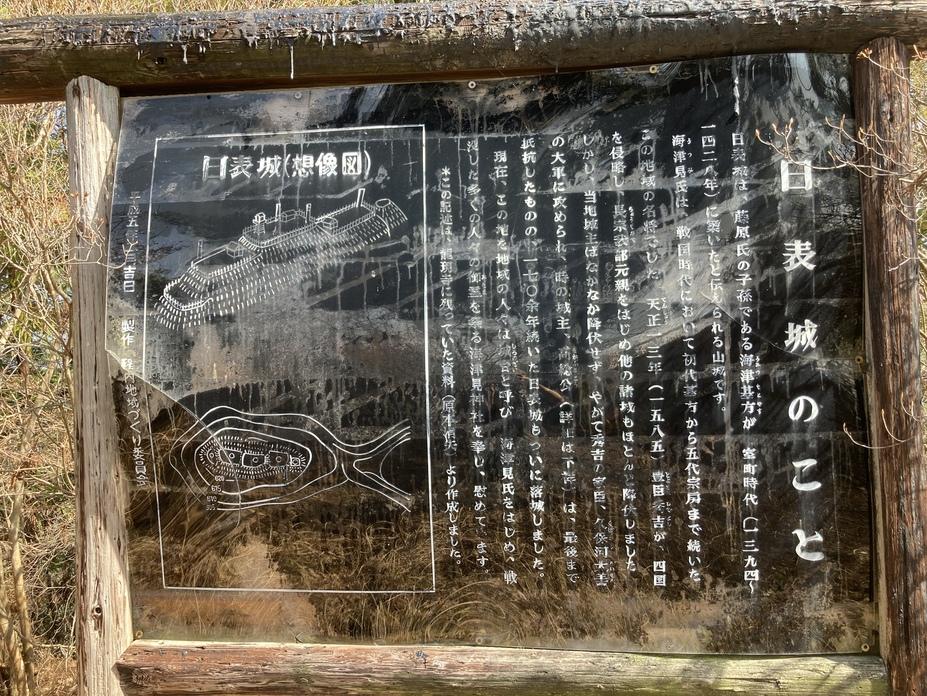 日表城のこと
日表城は、藤原氏の子孫である海津基方が、室町時代(一三九四〜
一四二八年)に築いたと伝えられる山城です。
海津見氏は、戦国時代において初代基方から五代宗房まで続いた、
この地域の名将でした。天正十三年(一五八五)、豊臣秀吉が、四国
を侵略し、長宗我部元親をはじめ他の諸城もほとんど降伏しました
しかし、当地城主はなかなか降伏せず、やがて秀吉の家臣、
の大軍に攻められ、時の城主、は、最後まで
抵抗したものの、一七〇余年続いた日表城もついに落城しました。
現在、この地を地域の人々は、と呼び、海津見氏をはじめ、戦
没した多くの人々の御霊を祭る海津見神社を奉し、慰めてます
*この記述は、龍現寺に残っていた資料(原本消失)より作成しました。
日表城(想像図)
620
615
610
平成五年 月吉日 製作 づくり委員会